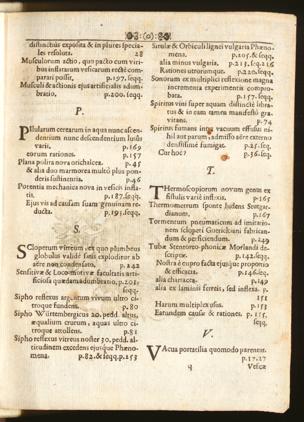 distinctius exposita & in plures specia-
les resoluta. 28
Musculorum actio, quo pacto cum viri-
bus inflatarum vesicarum rectè com-
parari possit, p.197. seqq.
Musculi & actionis ejus artificialis adum-
bratio, p.200. seqq.
P.
Pillularum cerearum in aquis nunc ascen-
dentium nunc descendentium lusus
varii, p.169
eorum rationes p.157
Plana polita nova orichalcea. p.45
& alia duo marmorea multò plus pon-
deris sustinentia. p.46
Potentia mechanica nova in vesicis infla-
tis, p.187. seqq.
Ejus vis ad causam suam genuinam re-
ducta. p.193. seqq.
S.
Sclopetum vitreum, ex quo plumbeus
globulus validè satis exploditur ab
aëre non condensato, p.242
Sensitivæ & Loco-motivæ facultatis arti-
ficiosa quædam adumbratio, p.201.
seqq.
Sipho reflexus argentum vivum ultro ci-
troque fundens. p.80
Sipho Würtembergicus 20. pedd. altus,
æqualium crurum, aquas ultro ci-
troque attollens. p.81
Sipho reflexus vitreus noster 30. ped. al-
titudinem excedens ejusque Phæno-
mena. p.82. & seqq. p.153
Situlæ & Orbiculi lignei vulgaria Phæno-
mena, p.205. & seqq.
alia minus vulgaria. p.215. seq. 216
Rationes utrorumque. p.220. seqq.
Sonorum ex multiplici reflexione magna
incrementa experimentis compro-
bata. p.157. seqq.
Spiritus vini super aquam distinctè libra-
tus & in eam tamen mandesto gra-
vitans. p.74
Spiritus fumans intra vacuum effusus ni-
hil aut parum, admisso aëre externo
densissimè fumigat. p.25. seq.
Cur hoc? p.56. seq.
T.
Thermoscopiorum novum genus ex
fistulis variè inflexis. p.165
Thermometrum sponte ludens Stutgar-
dianum. p.167
Tormentum pneumaticum ad imitatio-
nem sclopeti Guerickiani fabrican-
dum & perficiendum. p.249
Tubæ Stentoreo-phonicæ Morlandi de-
scriptio. p.142. seqq.
Nostra è cupro facta ejusque proportio
& efficacia. p.146. seq.
alia charracea. p.149
alia ex laminis ferreis, sed inflexa. p.
151
Harum multiplex usus. p.151
Earundem causæ & rationes. p.155.
seqq.
V.
VAcua portatilia quomodo parentur.
p.17. 27
Vesicæ